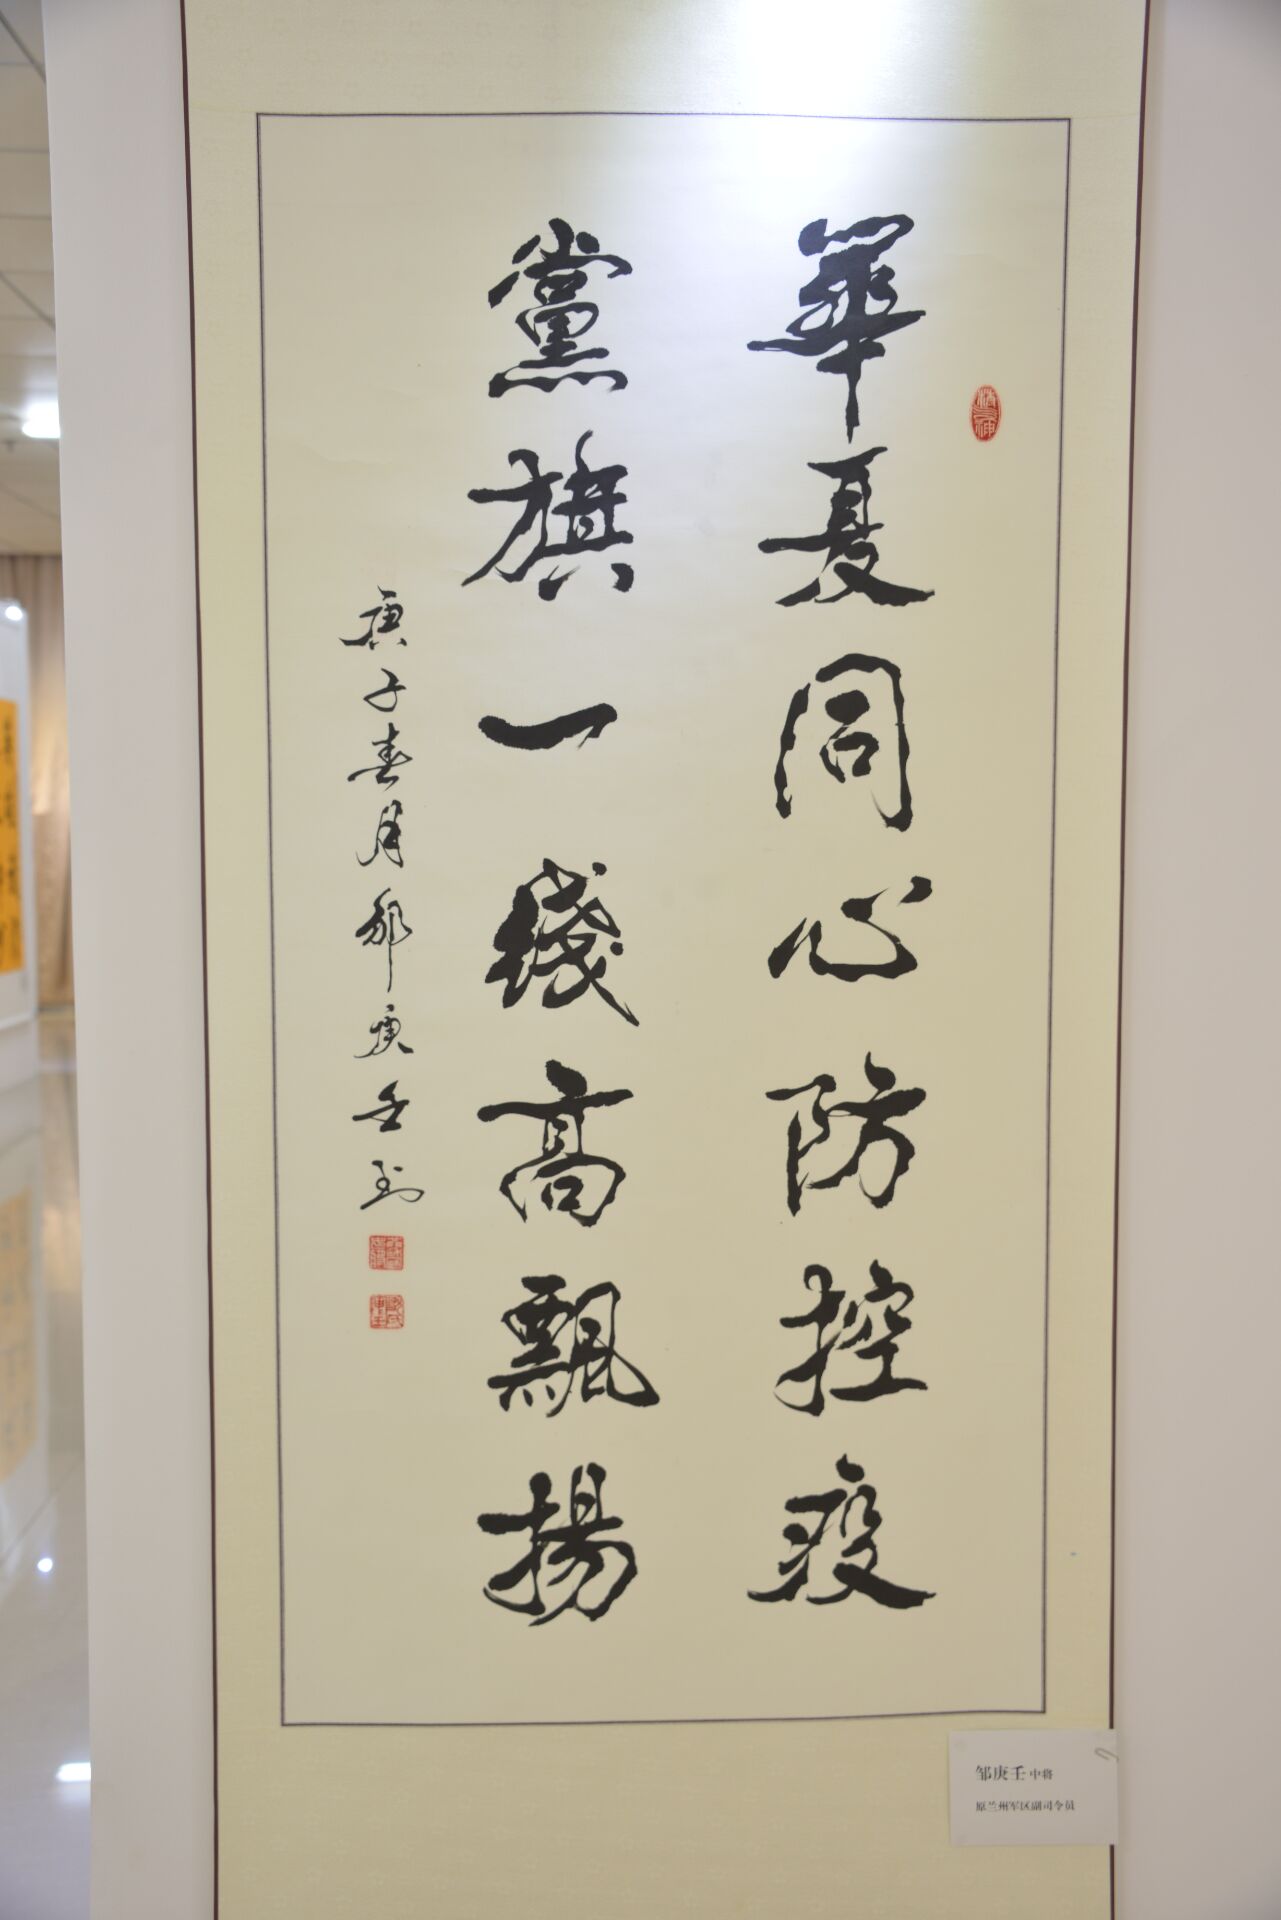 華夏同心防控疫
黨旗一綫高飄揚
庚子春月邹庚壬书
邹庚壬 中将
原兰州军区副司令员